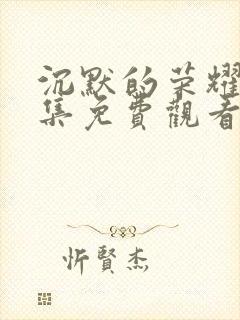 沉默的荣耀
集免費觀看
忻賢杰